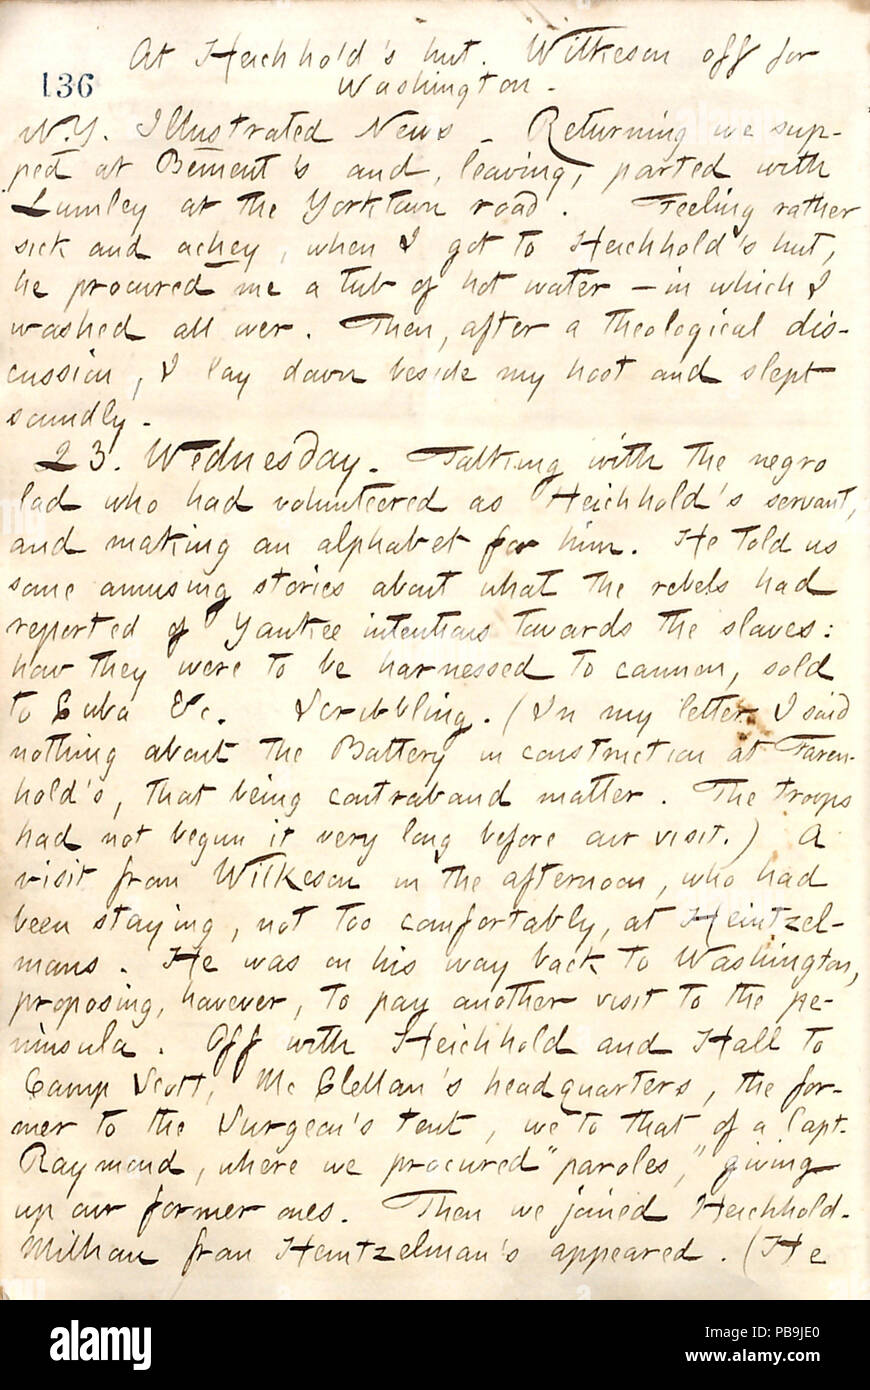 At Heichhold's hut. Wilkeson off for
136
Washington.
N.Y. Illustrated News. Returning we sup-
ped at Bement's and, leaving, parted with
Lumley at the Yorktown road. Feeling rather
sick and achey, when I got to Heichhold's hut,
he procured me a tub of hot water — in which I
washed all over. Then, after a theological dis-
cussion, I lay down beside my host and slept
soundly.
23. Wednesday. Talking with the negro
lad who had volunteered as Heichhold's servant,
and making an alphabet for him. He told us
some amusing stories about what the rebels had
reported of Yankee intentions towards the slaves:
how they were to be harnessed to cannon, sold
to Cuba &c. Scribbling. (In my letter I said
nothing about the Battery in construction at Faren-
hold's, that being contraband matter. The troops
had not begun it very long before our visit.) A
visit from Wilkeson in the afternoon, who had
been staying, not too comfortably, at Heintzel-
mans. He was on his way back to Washington,
proposing, however, to pay another visit to the pe-
ninsula. Off with Heichhold and Hall to
Camp Scott, Mc Clellan's headquarters, the for-
mer to the Surgeon's tent, we to that of a Capt.
Raymond, where we procured "paroles," giving
up our former ones. Then we joined Heichhold.
Milhau from Heintzelman's appeared. (He
alamy
PB9JE0
www.alamy.com